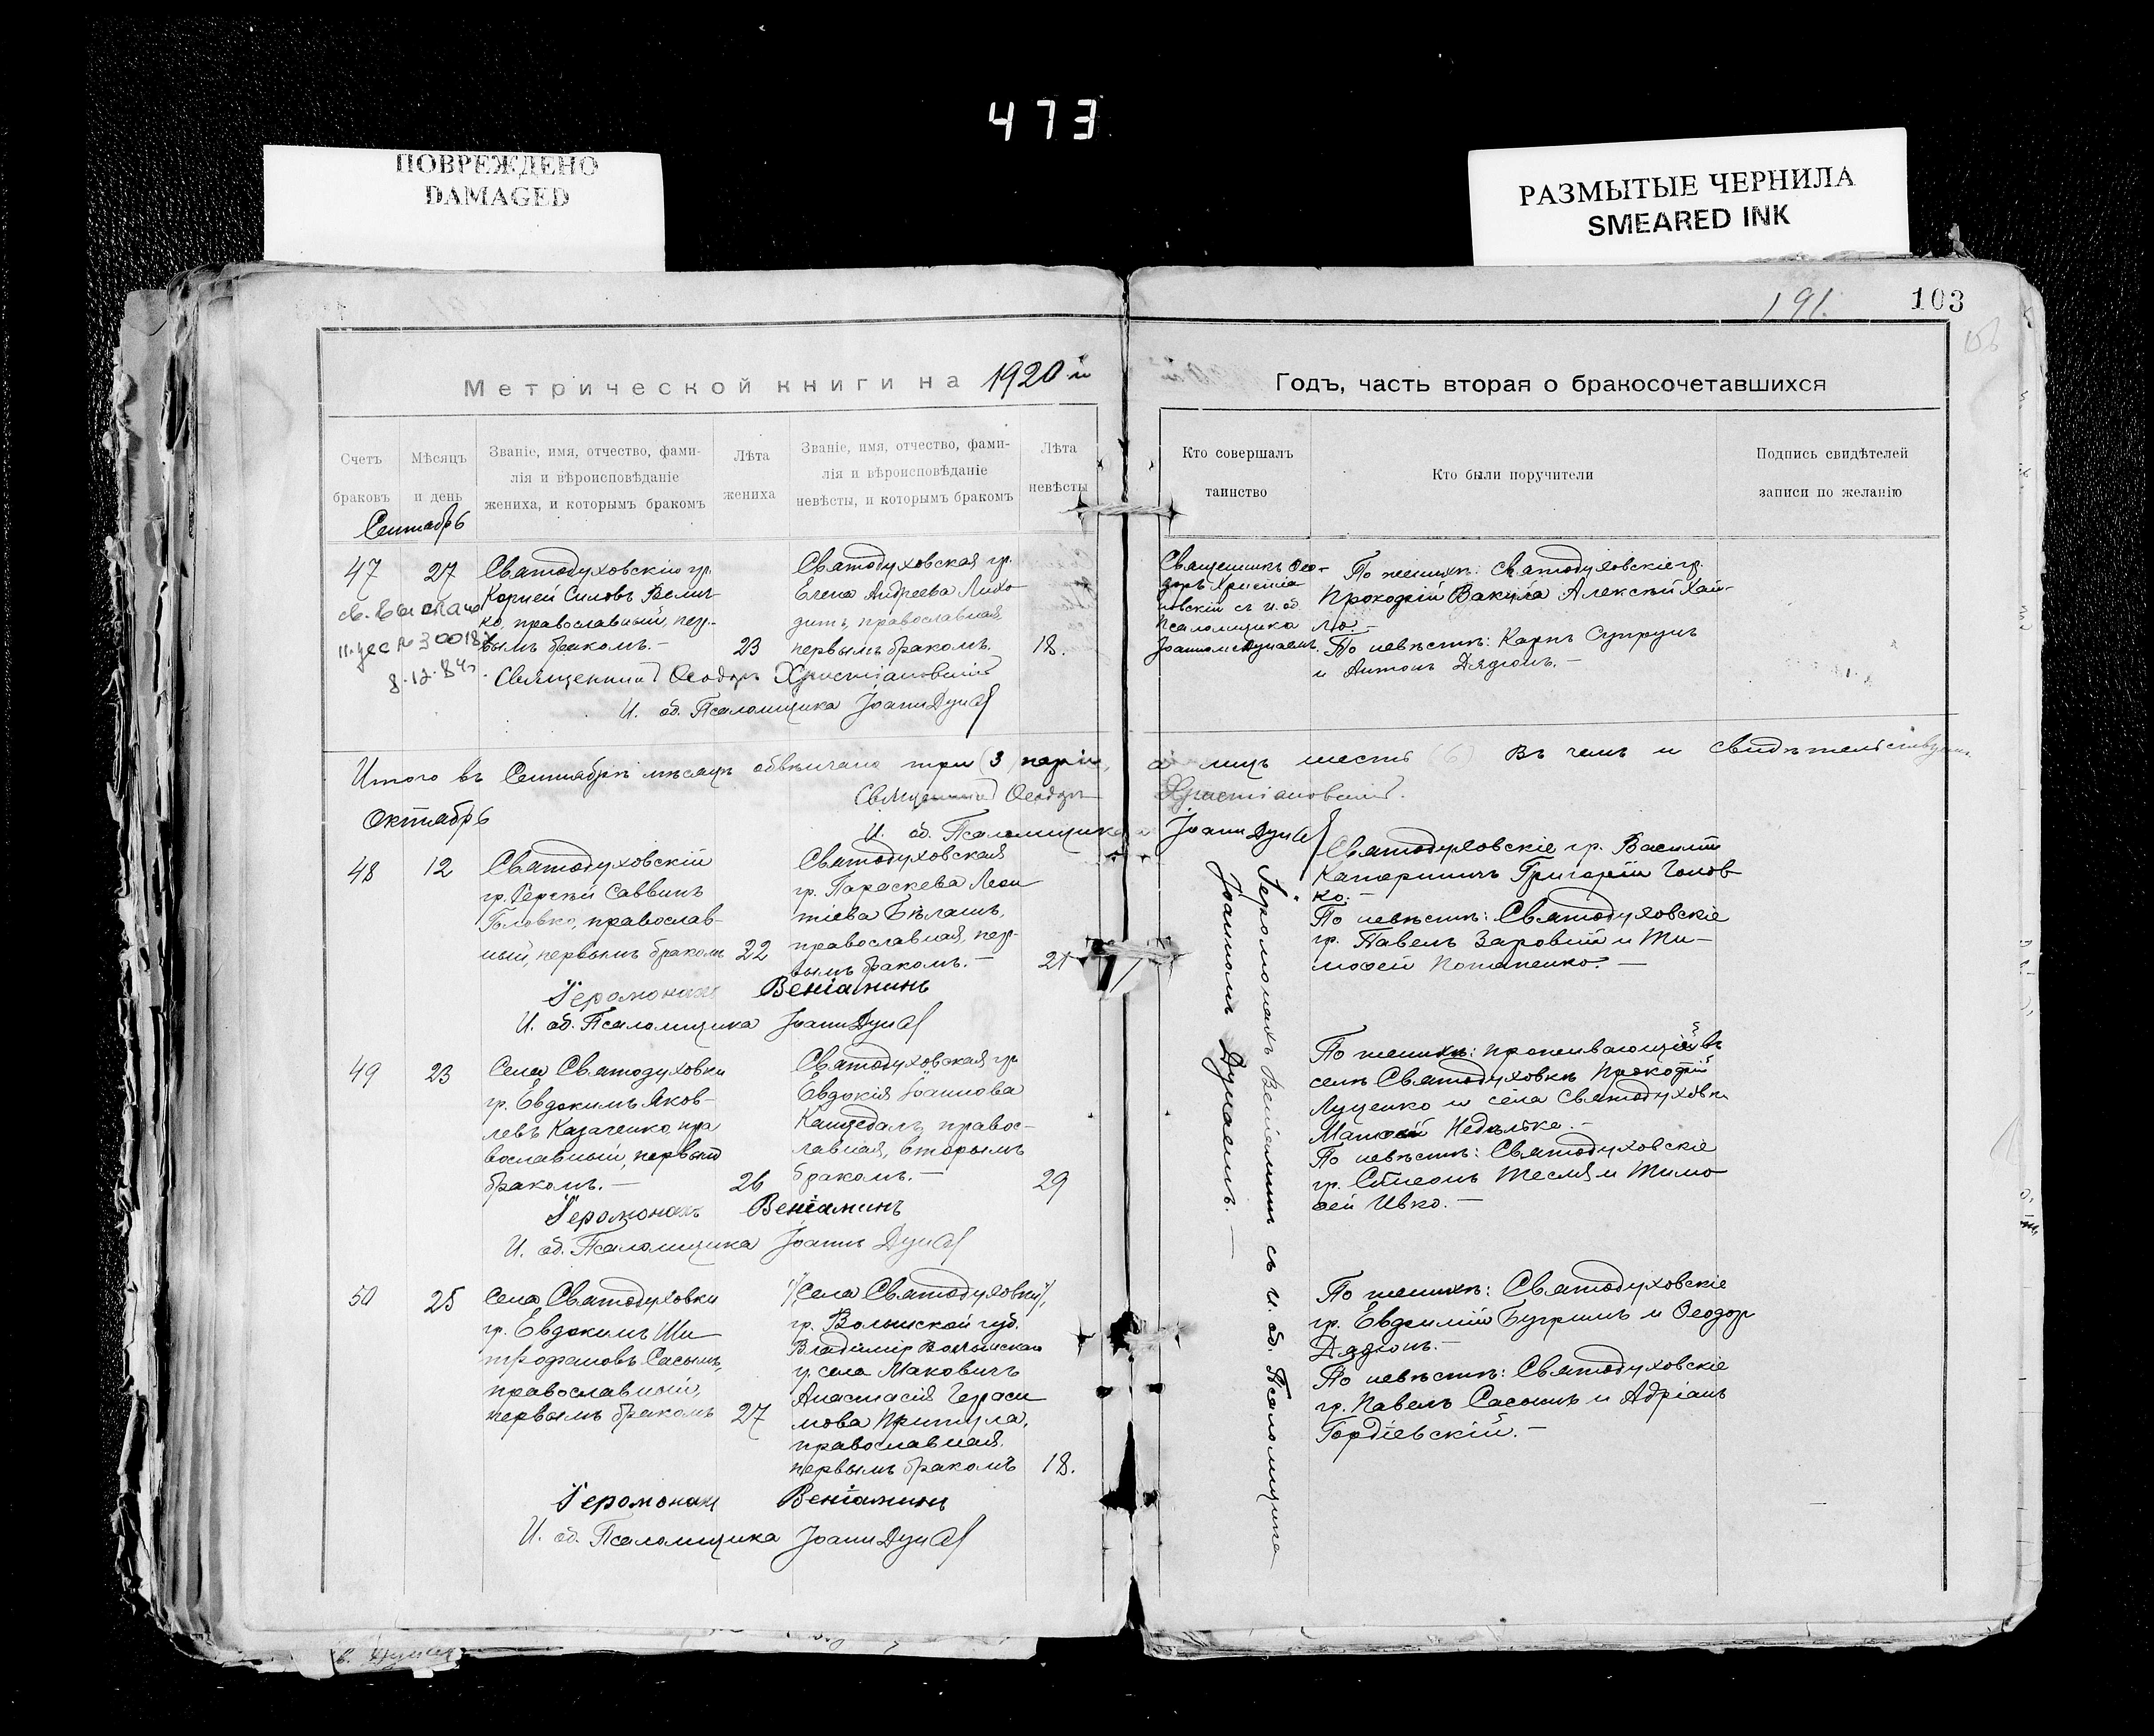 473
ПОВРЕЖДЕНО
DAMAGED
РАЗМЫТЫЕ ЧЕРНИЛА
SMEARED INK
191.
103
Метрической книги на 1920 й
Годъ, часть вторая о бракосочетавшихся
Счетъ браковъ
Мѣсяцъ и день
Званіе, имя, отчество, фами-
лія и вѣроисповѣданіе
жениха, и которымъ бракомъ
Лѣта жениха
Званіе, имя, отчество, фами-
лія и вѣроисповѣданіе
невѣсты, и которымъ бракомъ
Лѣта невѣсты
Кто совершалъ
таинство
Кто были поручители
Подпись свидѣтелей
записи по желанію
Сентябрь
47
27
Святодуховскій гр.
Корней Силовъ Велич-
ко, православный, пер-
вымъ бракомъ.-
23
Святодуховская гр.
Елена Андреева Лихо
дитъ, православная,
первымъ бракомъ.
18.
Священникъ Ѳео-
доръ Христіа
новскій съ и. об.
псаломщика
Іоанномъ Дунаемъ.
По женихѣ: Святодуховскіе гр.
Прокофій Вакула Алексѣй Хай-
ло.-
По невѣстѣ: Карпъ Супрунъ
и Антонъ Дядюнъ.-
Священникъ Ѳеодоръ Христіановскій
И. об. Псаломщика Іоаннъ Дунай
Итого въ Сентябрѣ мѣсяцѣ обвѣнчано три (3) пары, а лицъ шесть (6) Въ чемъ и свидѣтельствуемъ
Священникъ Ѳеодоръ Христіановскій.
И. об. Псаломщика Іоаннъ Дунай
Октябрь
48
12
Святодуховскій
гр. Сергѣй Саввинъ
Головко, православ-
ный, первымъ бракомъ
22
Святодуховская
гр. Параскева Леон
тіева Бѣлашъ,
православная, пер-
вымъ бракомъ.-
21
Святодуховскіе гр. Василій
Катеричъ Григорій Голов
ко.-
По невѣстѣ: Святодуховскіе
гр. Павелъ Заровный и Ти-
моѳей Потапенко.-
Іеромонахъ Веніаминъ
И. об. Псаломщика Іоаннъ Дунай
Іеромонахъ Веніаминъ съ и. об. Псаломщика
Іоанномъ Дунаемъ.-
49
23
Села Святодуховки
гр. Евдокимъ Яков-
левъ Казаченко, пра
вославный, первымъ
бракомъ.-
26
Святодуховская гр.
Евдокія Іоаннова
Канцедалъ, правос-
лавная, вторымъ
бракомъ.-
29
По женихѣ: проживающій въ
селѣ Святодуховкѣ Прокофій
Луценко и села Святодуховки
Матѳей Недѣлька.-
По невѣстѣ: Святодуховскіе
гр. Симеонъ Тесля и Тимо
ѳей Ивко.-
Іеромонахъ Веніаминъ
И. об. Псаломщика Іоаннъ Дунай
50
25
Села Святодуховки
гр. Евдокимъ Ми
трофановъ Сасынъ,
православный,
первымъ бракомъ
27
Села Святодуховки,
гр. Волынской губ.
Владимір Волынскаго
у. села Маковичъ
Анастасія Гераси
мова Притула,
православная,
первымъ бракомъ
18.
По женихѣ: Святодуховскіе
гр. Евфимій Бугримъ и Ѳеодоръ
Дядюнъ.-
По невѣстѣ: Святодуховскіе
гр. Павелъ Сасынъ и Адріанъ
Гордіевскій.-
Іеромонахъ Веніаминъ
И. об. Псаломщика Іоаннъ Дунай